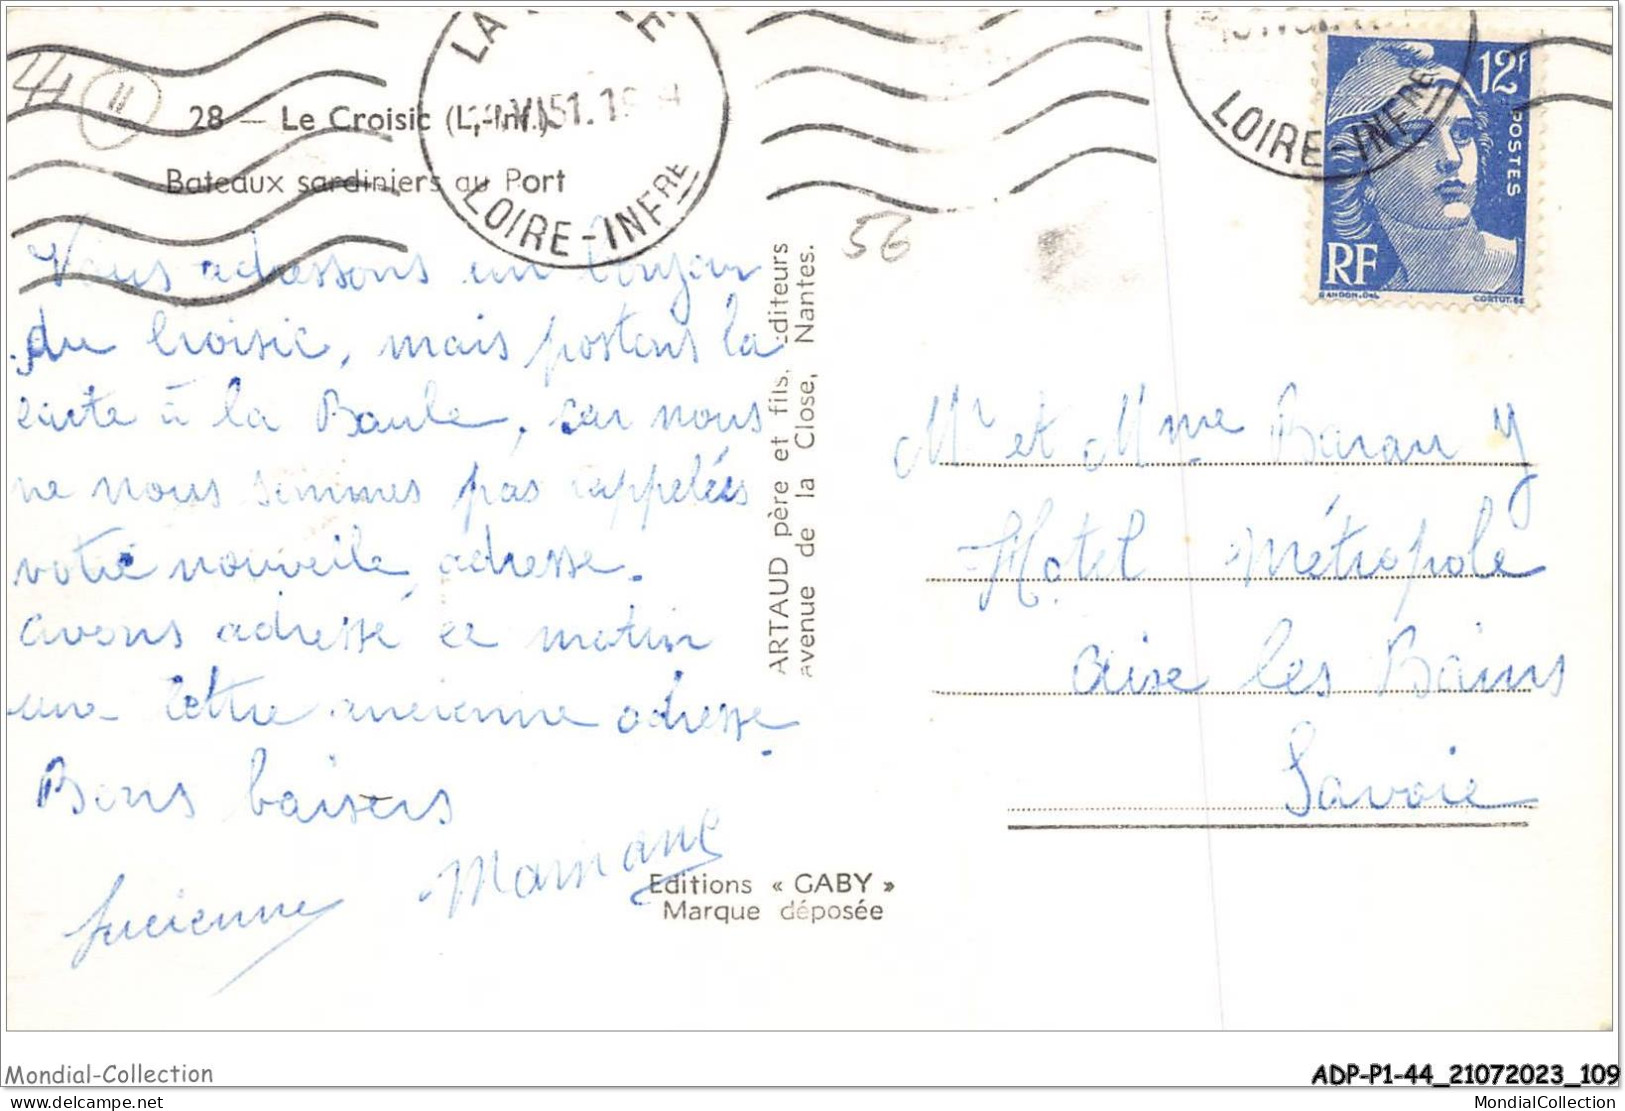 44 11
28 — Le Croisic (L.-Inf.)
Bateaux sardiniers au Port
LA
VI 51. 19
LOIRE-INFRE
LOIRE-INFRE
12F
POSTES
RF
GANDON.DEL
CORTOT.SC
56
Vous adressons un bonjour
du Croisic, mais postons la
carte à la Baule, car nous
ne nous sommes pas rappelées
votre nouvelle adresse.
avons adressé ce matin
une lettre ancienne adresse.
Bons baisers
Lucienne
ARTAUD père et fils, Editeurs
avenue de la Close, Nantes.
Editions « GABY »
Marque déposée
Mr et Mme Barany
Hotel Métropole
Aixe les Bains
Savoie
Mondial-Collection
ADP-P1-44_21072023_109
delcampe.net
MondialCollection